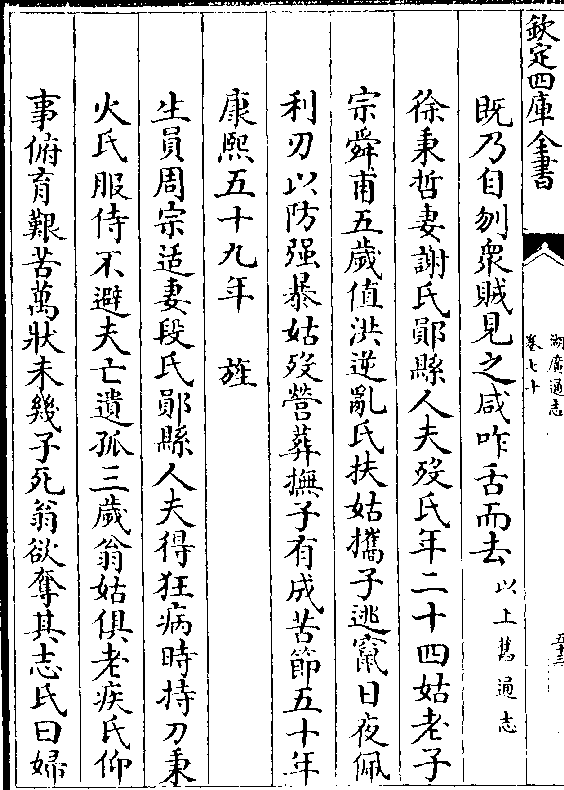 欽定四庫全書
湖廣通志
卷七十
五十三
既乃自刎衆賊見之咸咋舌而去以上舊通志
徐秉哲妻謝氏鄖縣人夫歿氏年二十四姑老子
宗舜甫五歲值洪逆亂氏扶姑攜子逃竄日夜佩
利刃以防强暴姑歿營葬撫子有成苦節五十年
康熙五十九年 旌
生員周宗适妻段氏鄖縣人夫得狂病時持刀秉
火氏服侍不避夫亡遺孤三歲翁姑俱老疾氏仰
事俯育艱苦萬狀未幾子死翁欲奪其志氏曰婦